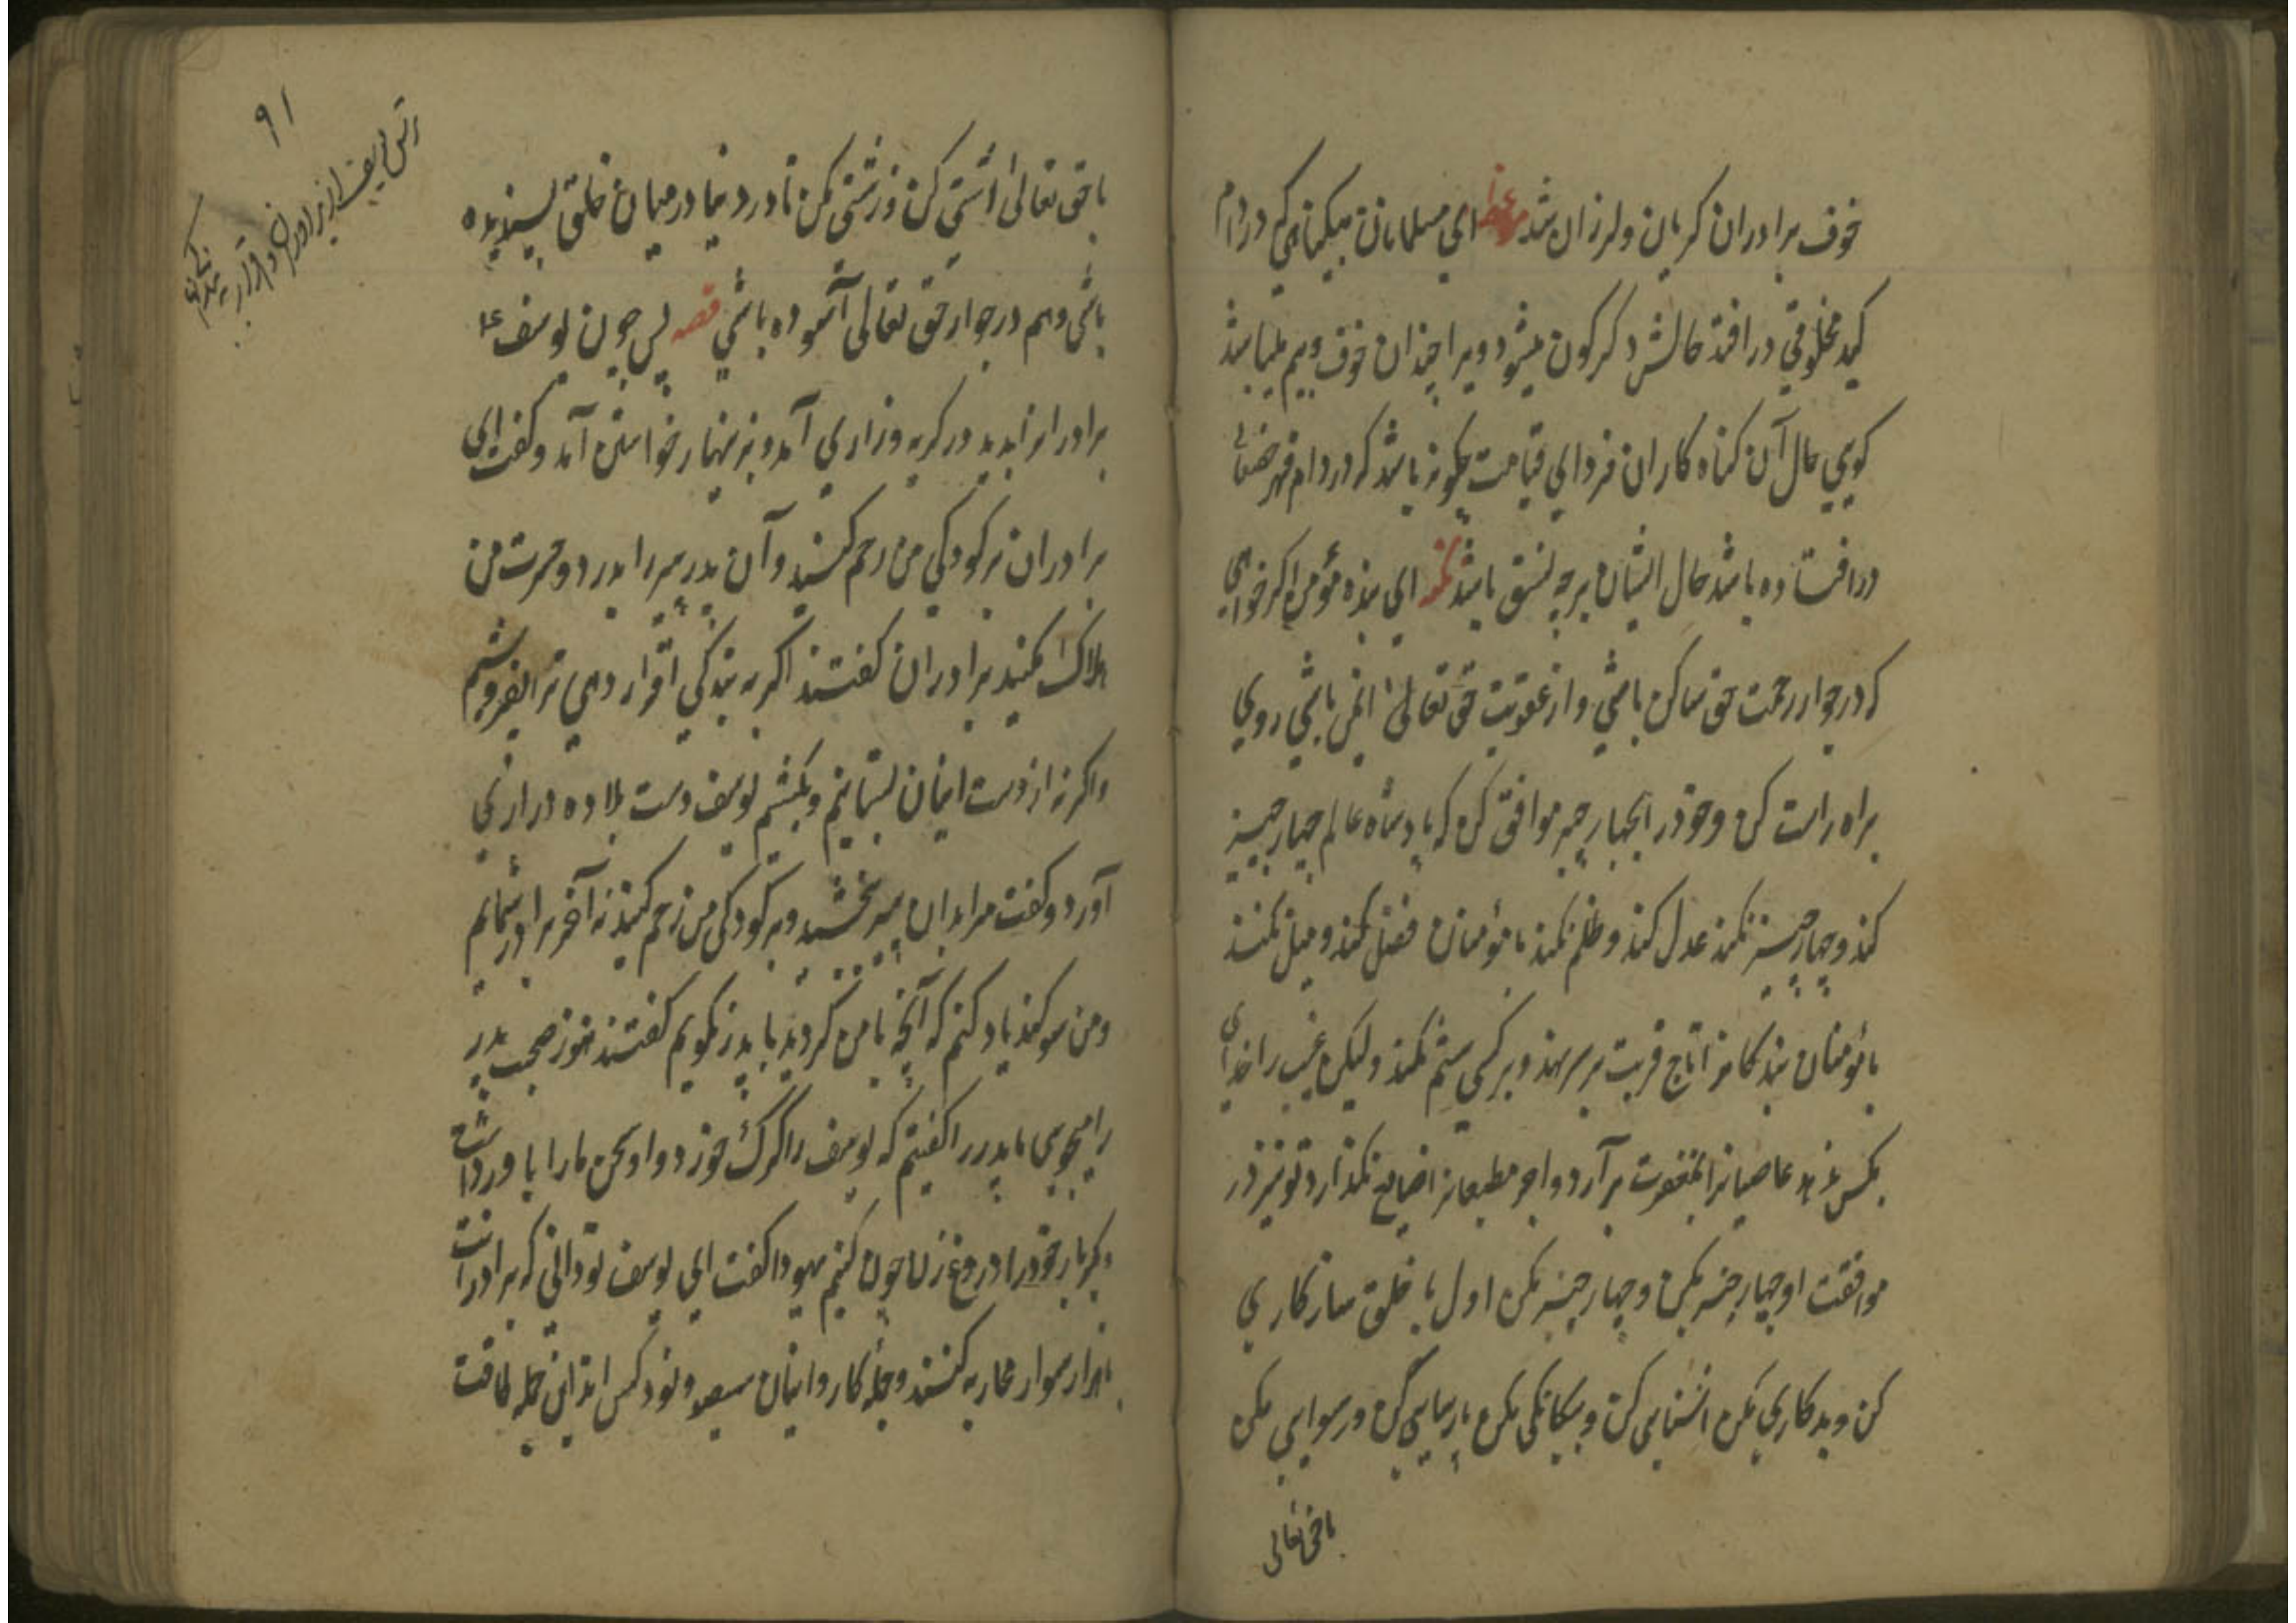 خوف برادران کریان ولرزان شد موعظه ای مسلمانان بیکناهی که در دام
کید مخلوقی در افتد حالش دکرکون میشود ویرا چندان خوف وبیم میباشد
کویی حال آن کناه کاران فردای قیامت چکونه باشد که در دام قهر خدای
درافتاده باشد حال ایشان برچه نسق باشد ای بنده مؤمن اکر خواهی
که در جوار رحمت حق ساکن باشی واز عقوبت حق تعالی ایمن باشی روی
براه راست کن وخودرا بچهار چیز موافق کن که پادشاه عالم چهار چیز
کند وچهار چیز نکند عدل کند وظلم نکند با مؤمنان فضل کند ومیل نکند
با مؤمنان بندکانرا تاج قربت بر سر نهد وبر کسی ستم نکند ولیکن غیب را خدای
بکس ندهد عاصیانرا بمغفرت برآرد واجر مطیعانرا ضایع نکذارد تو نیز در
موافقت او چهار چیز بکن وچهار چیز مکن اول با خلق سازکاری
کن وبدکاری مکن اشنایی کن وبیکانکی مکن پارسایی کن ورسوایی مکن
باحق تعالی
۹۱
باحق تعالی آشتی کن وزشتی مکن تا در دنیا درمیان خلق پسندیده
باشی وهم درجوار حق تعالی آسوده باشی قصه پس چون یوسف ع
برادرانرا بدید در کریه وزاری آمد وبزینهار خواستن آمد وکفت ای
برادران بر کودکی من رحم کنید وآن پدر پیر را بدرد وحسرت من
هلاک مکنید برادران کفتند اکر به بندکی اقرار دهی ترا بفروشیم
واکرنه از دست اینان بستانیم وبکشیم یوسف دست بلاده در زاری
آورد وکفت مرا بدان پیر بخشید وبر کودکی من رحم کنید نه آخر برادر شمایم
ومن سوکند یاد کنم که آنچه با من کردید با پدر نکویم کفتند هنوز صحبت پدر
را میجویی ما پدر را کفتیم که یوسف را کرک خورد واو سخن ما را باور داشت
دیکر بار خودرا دروغ زن چون کنیم یهودا کفت ای یوسف تو دانی که برادرانت
با هزار سوار محاربه کنند وجمله کاروانیان سیصد ونود کس اند این جمله طاقت